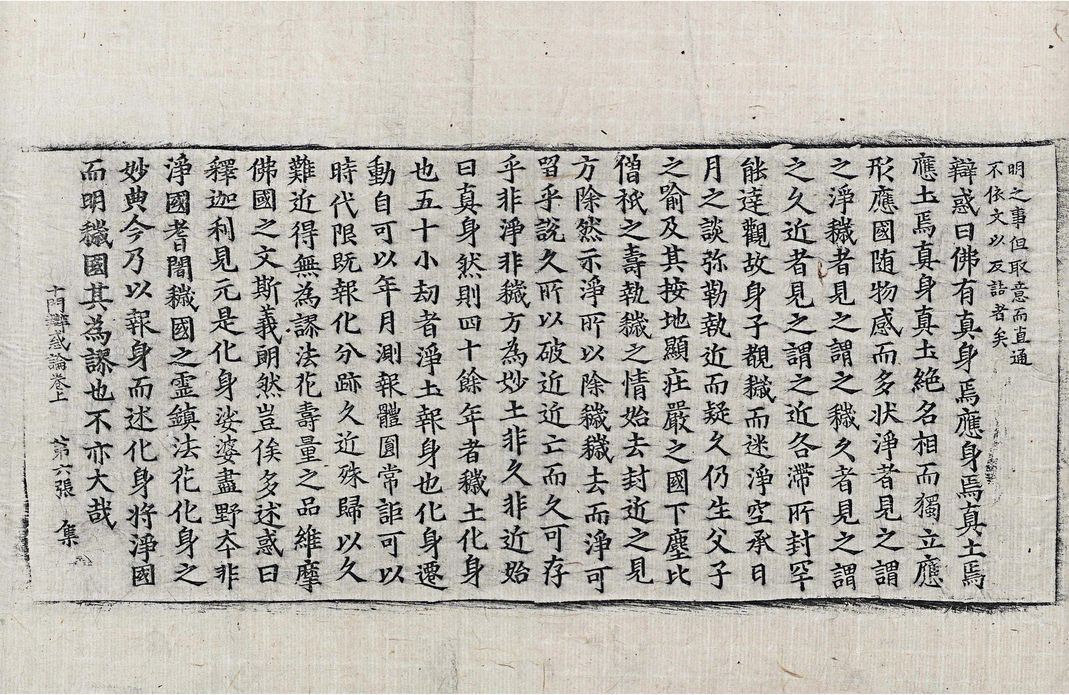 明之事但取意而直通
不依文以反詰者矣
辯惑曰佛有真身焉應身焉真土焉
應土焉真身真土絕名相而獨立應
形應國随物感而多状淨者見之謂
之淨穢者見之謂之穢久者見之謂
之久近者見之謂之近各滯所封罕
能達觀故身子覩穢而迷淨空承日
月之談弥勒執近而疑久仍生父子
之喻及其按地顯疘嚴之國下塵比
僧祇之壽執穢之情始去封近之見
方除然示淨所以除穢穢去而淨可
留乎說久所以破近近亡而久可存
乎非淨非穢方為妙土非久非近始
曰真身然則四十餘年者穢土化身
也五十小劫者淨土報身也化身遷
動自可以年月測報體圓常詎可以
時代限既報化分跡久近殊歸以久
難近得無為謬法花壽量之品維摩
佛國之文斯義朗然豈俟多述惑曰
釋迦利見元是化身娑婆盡野夲非
淨國耆闍穢國之霊鎮法花化身之
妙典今乃以報身而述化身將淨國
而明穢國其為謬也不亦大哉
十門辯惑論卷上　第六張　集